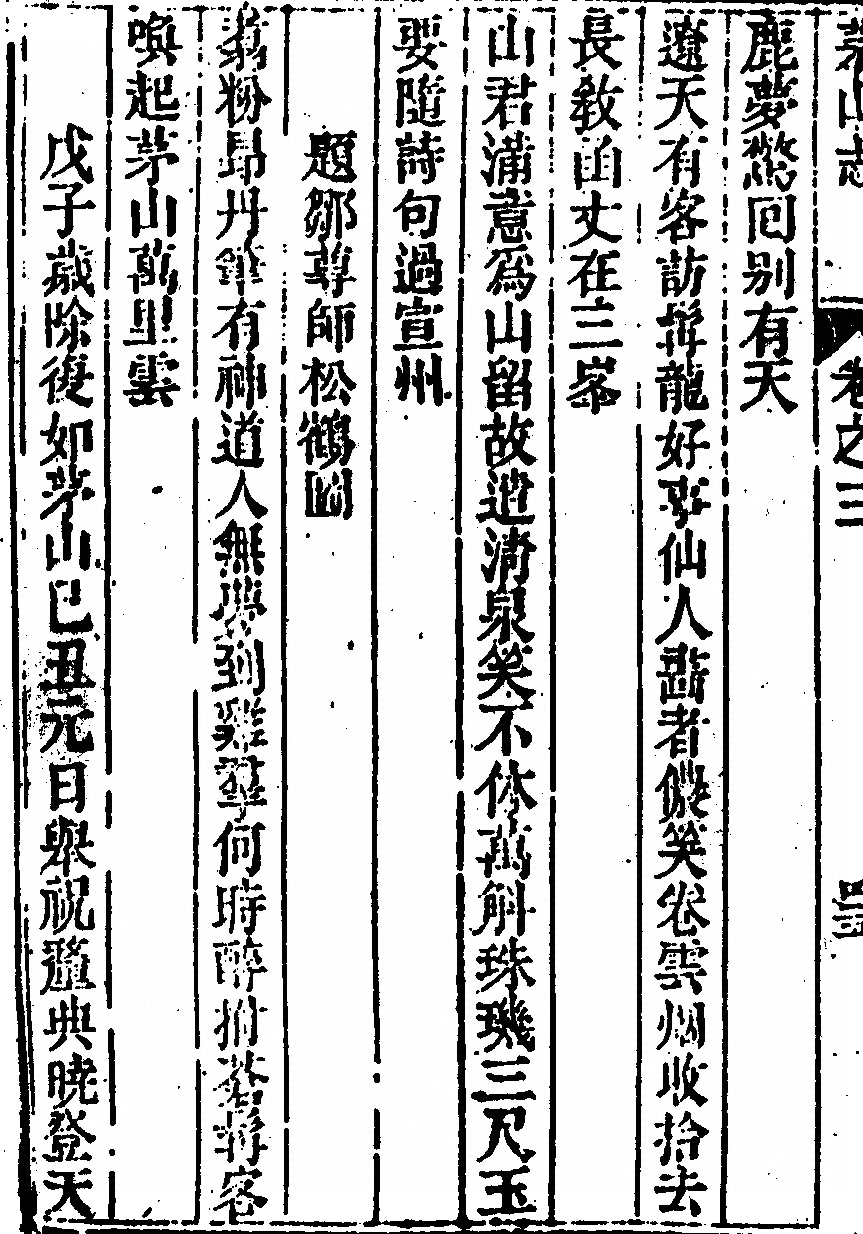 茅山志 卷之三
鹿夢驚回别有天
遼天有客訪髯龍好事仙人畵者儂笑卷雲烟收拾去
長教函丈在三峯
山君滿意爲山留故遣淸泉笑不休萬斛珠璣三尺玉
要隨詩句過宣州
題鄒尊師松鶴圖
翦粉昂丹筆有神道人無夢到雞羣何時醉拊蒼髯客
喚起茅山萬里雲
戊子歲除復如茅山已丑元日舉祝釐典曉登天